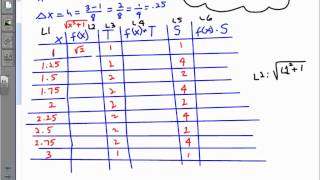 Δx = 4 = 3-1/8 = 2/8 = 1/4 = .25
L1 √x²+1 L2 L3 L4 L5 L6
x f(x) T f(x)*T S f(x)·S
1 √2 1 1
1.25 2 4
1.5 2 2
1.75 2 4
2 2 2
2.25 2 4
2.5 2 2
2.75 2 4
3 1 1
L2: √L1²+1